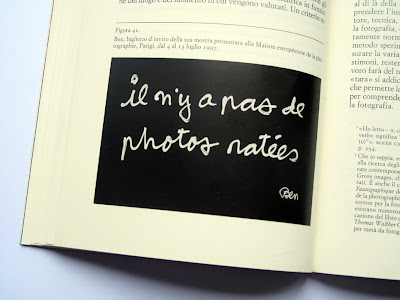 ne del luogo e del momento in cui vengono valutati. Un criterio
Figura 41.
Ben, biglietto d'invito della sua mostra presentata alla Maison européenne de la pho-
tographie, Parigi, dal 4 al 13 luglio 1997.
il n'y a pas de
photos ratées
Ben
al di là della
prendere l'in
tore, tecnica,
la fotografia,
ramente norm
metodo sperim
surare la varia
stesse, restitu
voro farà del t
«tara» si addic
che permette la
per comprende
la fotografia.
«Ho letto
verbo significa
to)».
p. 254.
Che io sappia,
alla ricerca degli
rate contemporan
Gross images, ch
rati. È anche il c
Fautographique d
de la photographi
teresse per la foto
esistano numeros
cazione del libro
Thomas Walther C
per metà da fotog